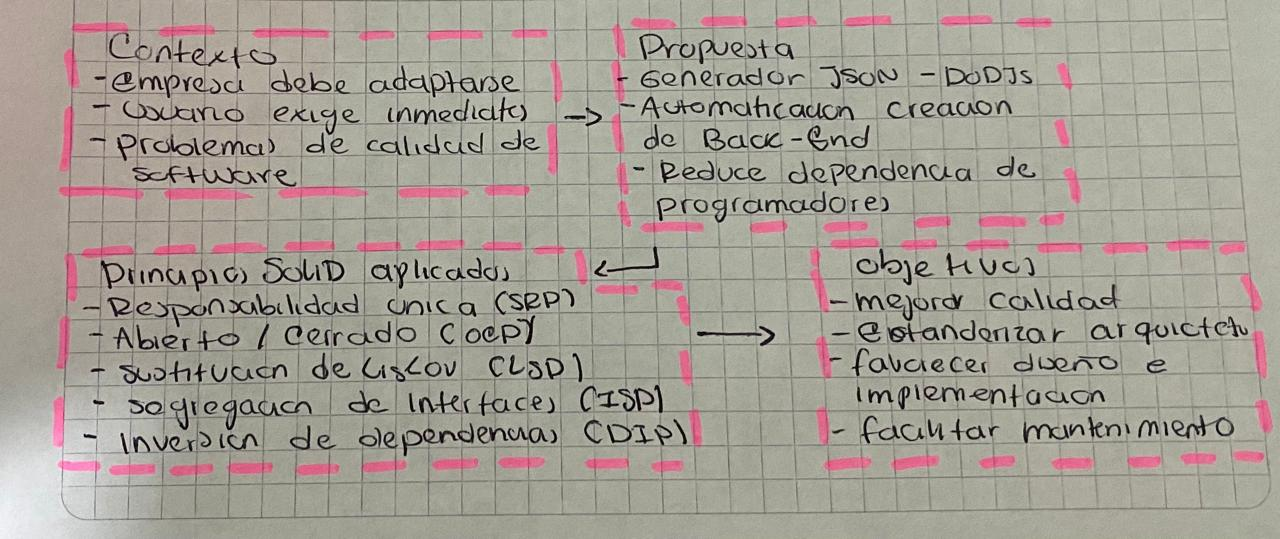 Contexto
- empresa debe adaptarse
- Usuario exige inmediato
- Problemas de calidad de
software
Propuesta
- Generador JSON - DODJs
- Automaticacion creacion
de Back-End
- Reduce dependencia de
programadores
Principios SOLID aplicados
- Responsabilidad unica (SRP)
- Abierto / Cerrado (OCP)
- sustitucion de Liskov (LSP)
- segregacion de Interfaces (ISP)
- Inversion de dependencias (DIP)
objetivos
- mejorar calidad
- estandarizar arquictetu
- favorecer diseño e
implementacion
- facilitar mantenimiento